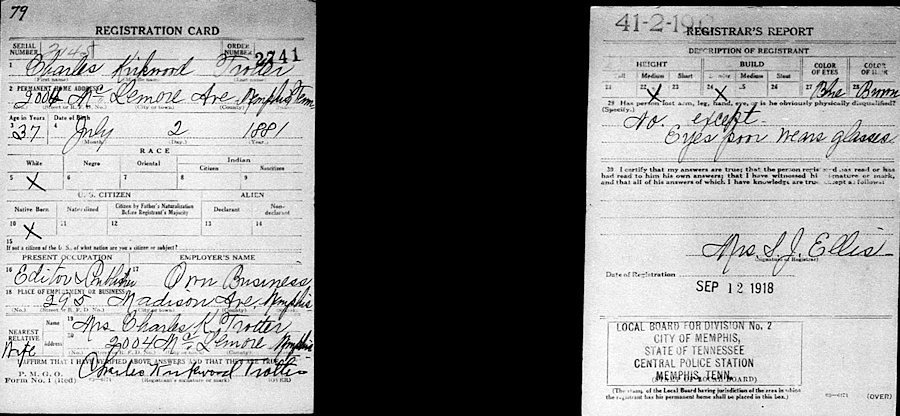 79
REGISTRATION CARD
SERIAL NUMBER
ORDER NUMBER 2741
1 Charles Kirkwood Trotter
(First name) (Middle name)
2 PERMANENT HOME ADDRESS
2004 Mc Lemore Ave Memphis Tenn
(No.) (Street or R. F. D. No.) (City or town)
Age in Years Date of Birth
3 37 4 July 2 1881
(Month.) (Day.) (Year.)
RACE
White Negro Oriental Indian
Citizen Noncitizen
5 X 6 7 8 9
U. S. CITIZEN ALIEN
Native Born Naturalized Citizen by Father's Naturalization Before Registrant's Majority Declarant Non-declarant
10 X 11 12 13 14
15
If not a citizen of the U. S., of what nation are you a citizen or subject?
PRESENT OCCUPATION EMPLOYER'S NAME
16 Editor & Publisher 17 Own Business
18 PLACE OF EMPLOYMENT OR BUSINESS
295 Madison Ave, Memphis
(No.) (Street or R. F. D. No.)
NEAREST RELATIVE Name 19 Mrs. Charles K. Trotter
Wife Address 20 2004 Mc Lemore Memphis
I AFFIRM THAT I HAVE VERIFIED ABOVE ANSWERS AND THAT THEY ARE TRUE
P. M. G. O.
Form No. 1 (Red) Charles Kirkwood Trotter
(Registrant's signature or mark) (OVER)
REGISTRAR'S REPORT
DESCRIPTION OF REGISTRANT
HEIGHT BUILD COLOR OF EYES COLOR OF HAIR
Tall Medium Short Slender Medium Stout
21 22 X 23 24 X 25 26 27 Blue 28 Brown
29 Has person lost arm, leg, hand, eye, or is he obviously physically disqualified?
(Specify.)
No. except-
Eyes poor wears glasses
30 I certify that my answers are true; that the person registered has read or has
had read to him his own answers; that I have witnessed his signature or mark,
and that all of his answers of which I have knowledge are true, except as follows:
Mrs. S. J. Ellis
(Signature of Registrar)
Date of Registration
SEP 12 1918
LOCAL BOARD FOR DIVISION No. 2
CITY OF MEMPHIS,
STATE OF TENNESSEE
CENTRAL POLICE STATION
MEMPHIS, TENN.
(STAMP OF LOCAL BOARD)
(The stamp of the Local Board having jurisdiction of the area in which
the registrant has his permanent home shall be placed in this box.)
(OVER)